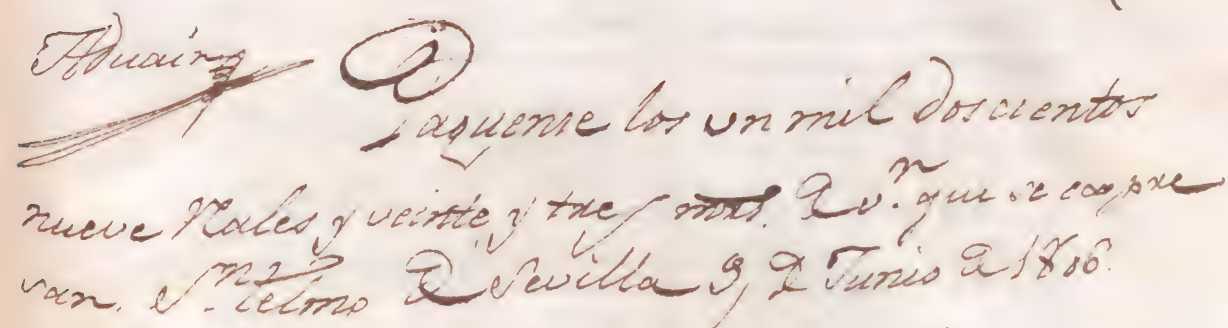 Paquense los un mil doscientos
nueve Rales y veinte y tres mrs. de v.n que se expre
san. S.n Telmo de Sevilla 9, de Junio de 1806.